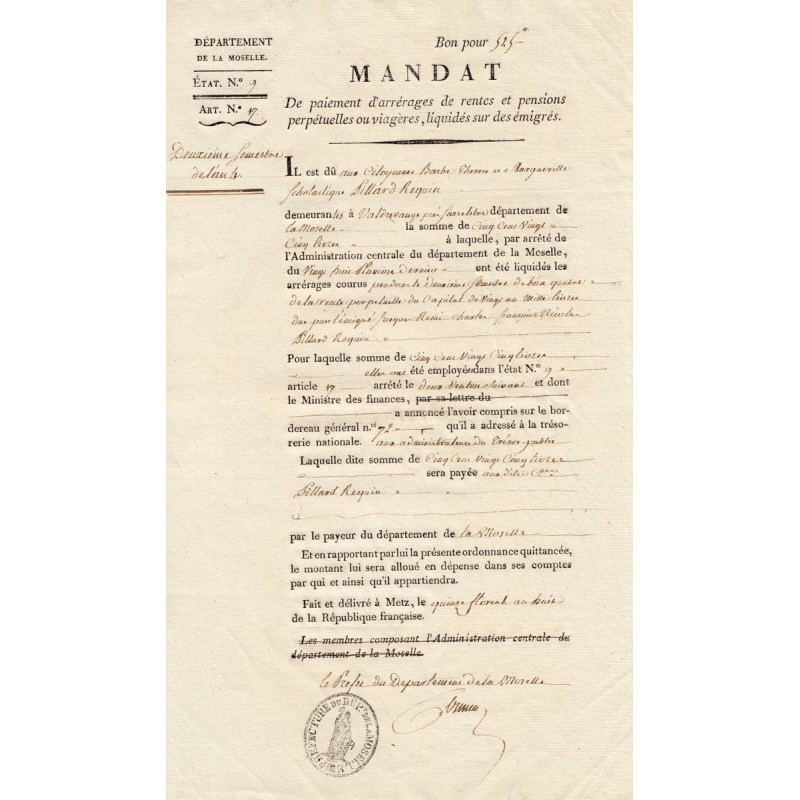 DÉPARTEMENT
DE LA MOSELLE.
ÉTAT. N.º 9
ART. N.º 17
Deuxième Semestre
de l'an 4.
Bon pour 525
MANDAT
De paiement d'arrérages de rentes et pensions
perpétuelles ou viagères, liquidés sur des émigrés.
IL est dû aux Citoyennes Barbe Therese et Margueritte
Scholastique Lillard Requin
demeurantes à Valdrevange près Sarrelibre département de
la Moselle la somme de Cinq Cent Vingt
Cinq livres à laquelle, par arrêté de
l'Administration centrale du département de la Moselle,
du Vingt huit Pluviose dernier ont été liquidés les
arrérages courus pendant le deuxième Semestre de l'an quatre
de la rente perpetuelle du Capital de Vingt un mille livres
due par l'émigré Jacques Remi Charles François Nicolas
Lillard Requin
Pour laquelle somme de Cinq Cent Vingt Cinq livres
elles ont été employées dans l'état N.º 9
article 17 arrêté le deux Ventose suivant et dont
le Ministre des finances, par sa lettre du
a annoncé l'avoir compris sur le bor-
dereau général n.º 72 qu'il a adressé à la tréso-
rerie nationale. aux administrateurs du Trésor public
Laquelle dite somme de Cinq Cent Vingt Cinq livres
sera payée aux dites
Lillard Requin
par le payeur du département de la Moselle
Et en rapportant par lui la présente ordonnance quittancée,
le montant lui sera alloué en dépense dans ses comptes
par qui et ainsi qu'il appartiendra.
Fait et délivré à Metz, le quinze floreal an huit
de la République française.
Les membres composant l'Administration centrale du
département de la Moselle.
le Prefet du Departement de la Moselle
PREFECTURE DU DEP.T DE LA MOSELLE